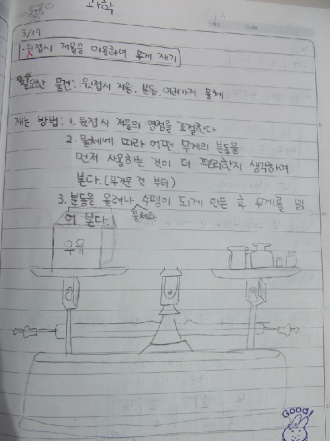 과학
3/19
윗접시 저울을 이용하여 무게 재기
필요한 물건: 윗접시 저울, 분동, 여러가지 물체
재는 방법: 1. 윗접시 저울의 영점을 조절한다
2. 물체에 따라 어떤 무게의 분동을
먼저 사용하는 것이 더 편리한지 생각하여
본다. (무거운 것 부터)
3. 분동을 올려나 수평이 되게 만든 후 무게를 읽
물체와
어 본다.
우유
Good!